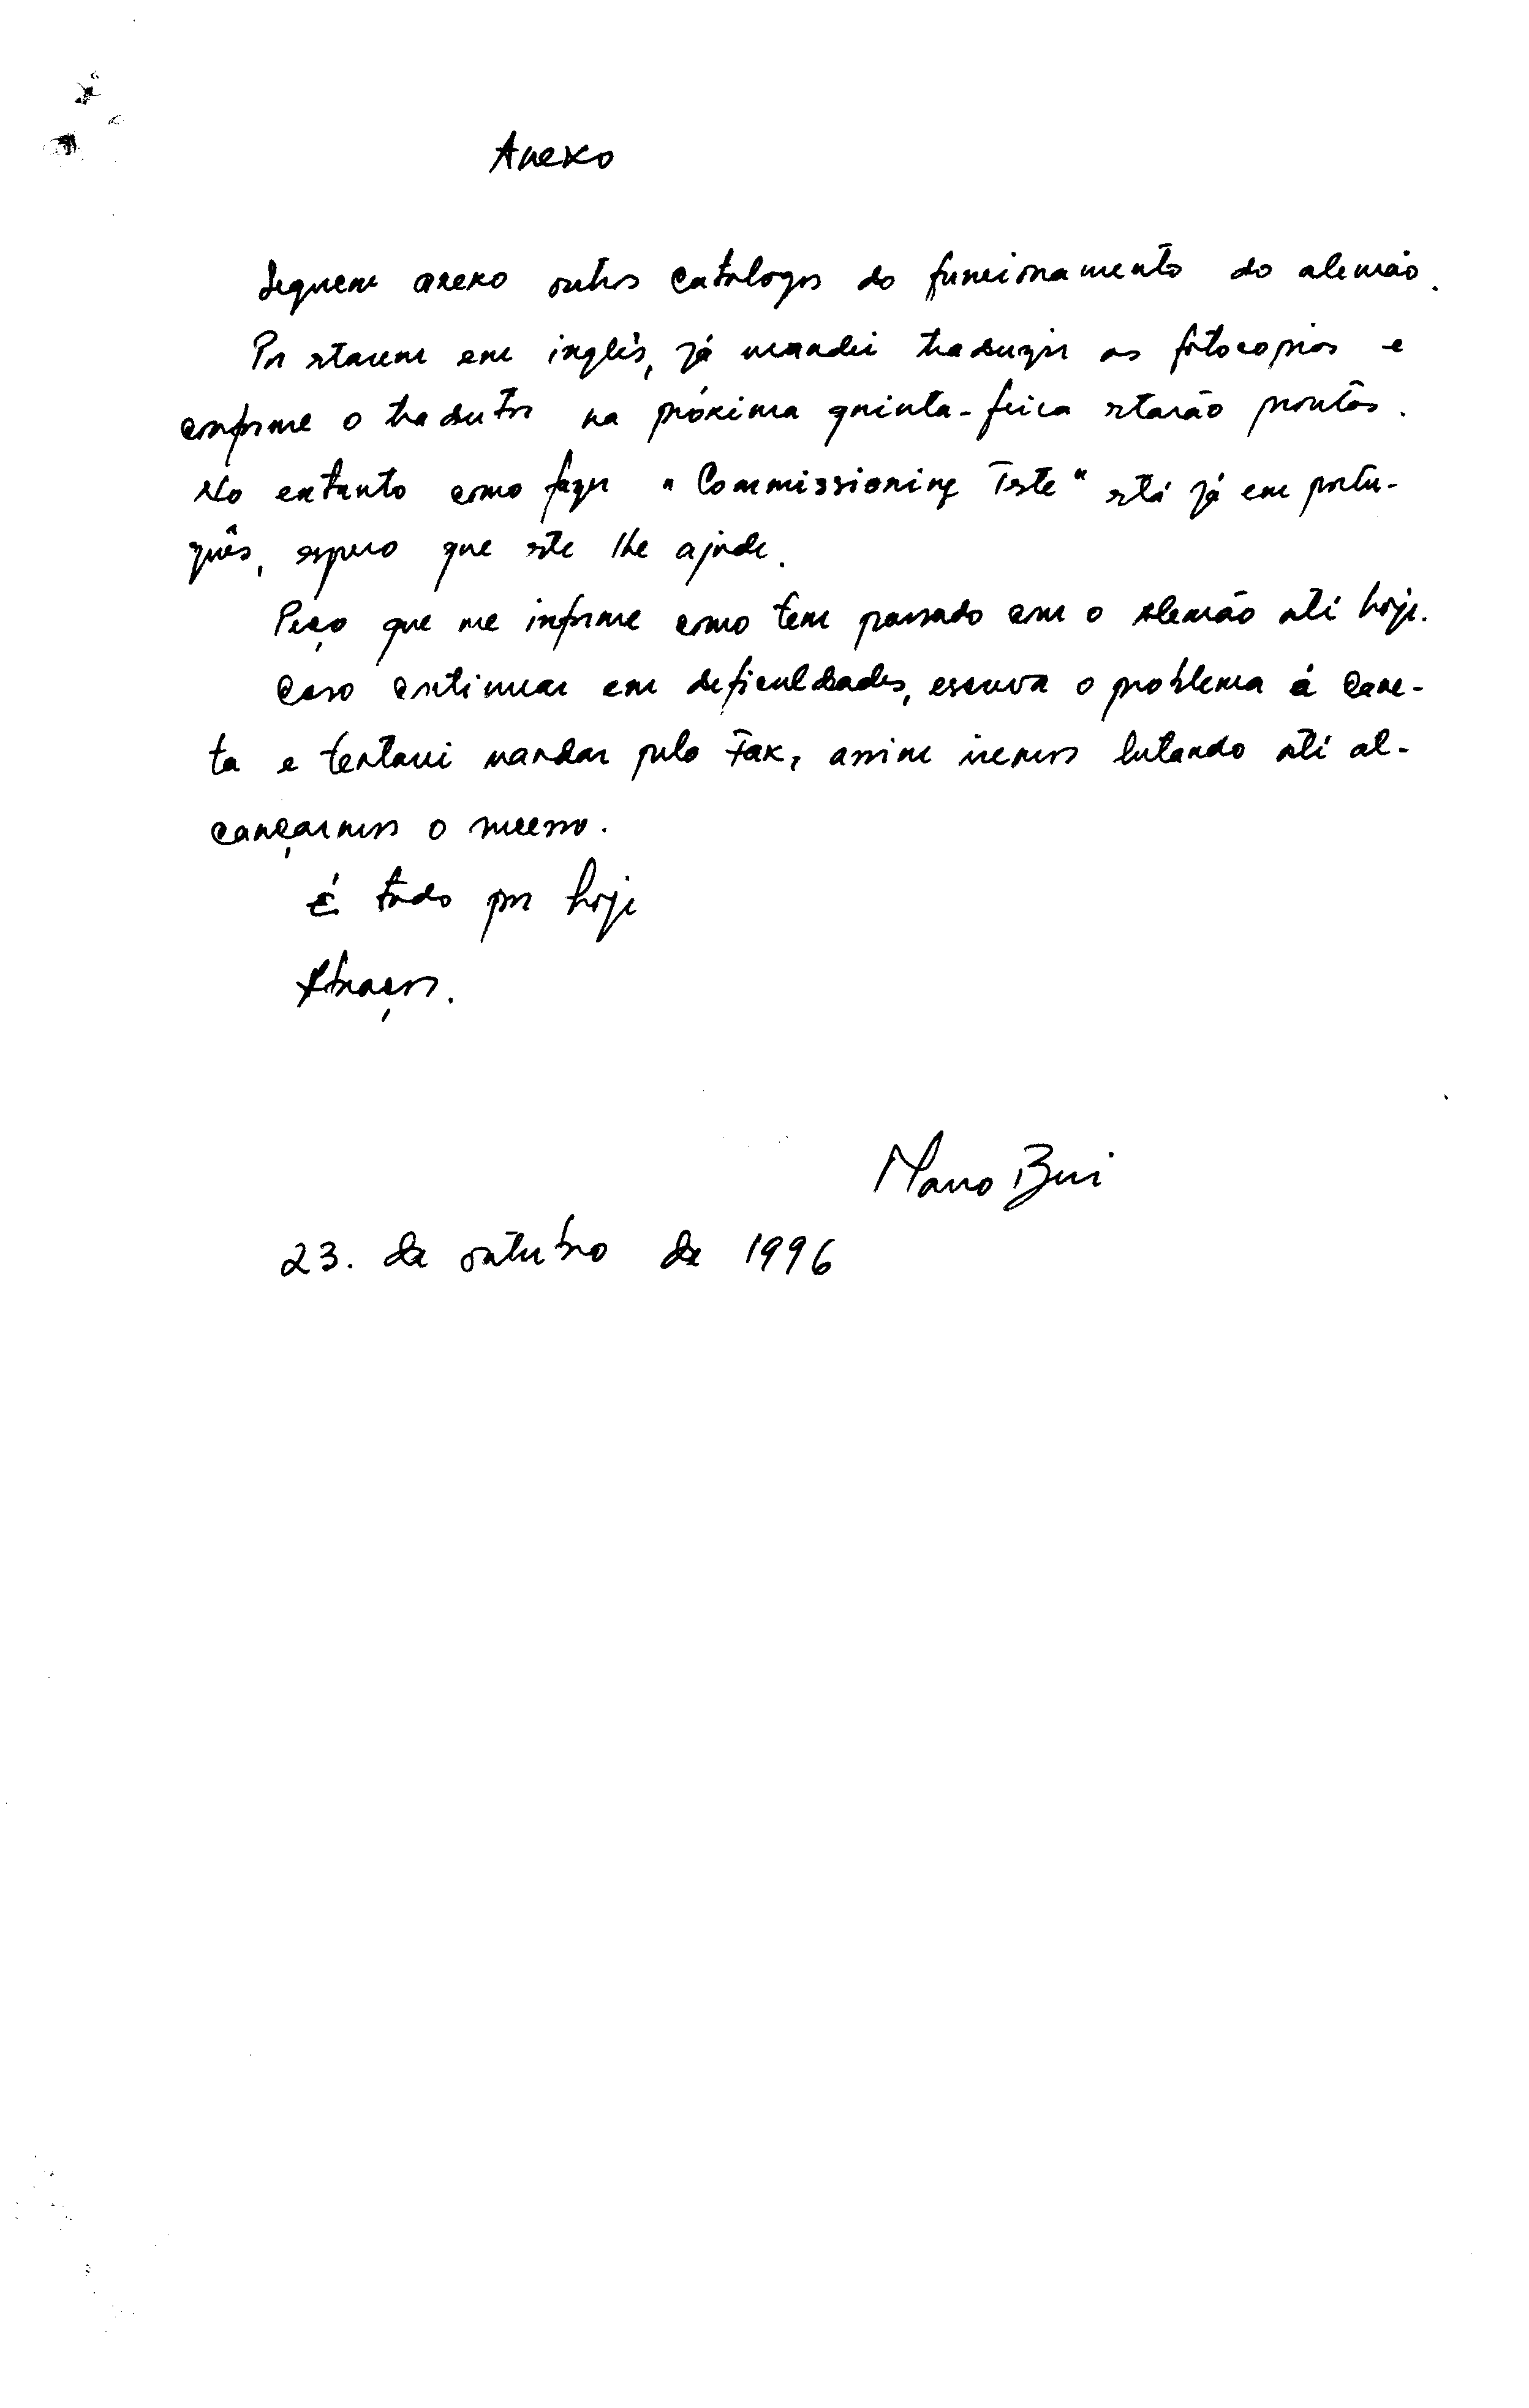 Anexo
Seguem anexo outros catálogos do funcionamento do alemão.
Por estarem em inglês, já mandei traduzir as fotocopias e
conforme o tradutor na próxima quinta-feira estarão prontas.
No entanto como fazer "Commissioning Teste" está já em portu-
guês, espero que este lhe ajude.
Peço que me informe como tem passado com o Alemão até hoje.
Caso continuar em deficuldades, escreva o problema á cane-
ta e tentarei mandar pelo Fax, assim iremos lutando até al-
cançarmos o sucesso.
É tudo por hoje
Abraços.
Mano
23. de outubro de 1996